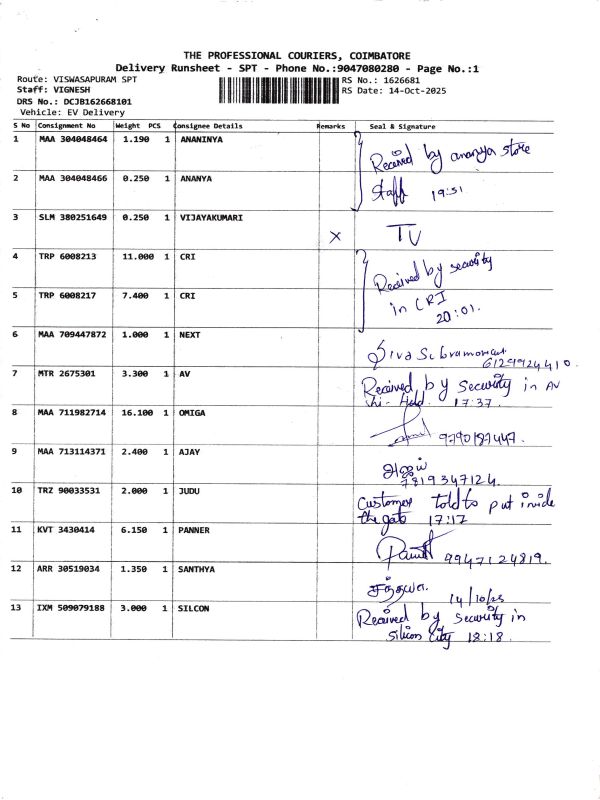 THE PROFESSIONAL COURIERS, COIMBATORE
Delivery Runsheet - SPT - Phone No.:9047080280 - Page No.:1
Route: VISWASAPURAM SPT
RS No.: 1626681
Staff: VIGNESH
RS Date: 14-Oct-2025
DRS No.: DCJB162668101
Vehicle: EV Delivery
S No Consignment No Weight PCS Consignee Details Remarks Seal & Signature
1 MAA 304048464 1.190 1 ANANINYA
Received by ananya store
2 MAA 304048466 0.250 1 ANANYA
staff 19:51
3 SLM 380251649 0.250 1 VIJAYAKUMARI
X TV
4 TRP 6008213 11.000 1 CRI
Received by security
5 TRP 6008217 7.400 1 CRI
in CRI
20:01.
6 MAA 709447872 1.000 1 NEXT
6129924410.
7 MTR 2675301 3.300 1 AV
Received by Security in AV
17:37.
8 MAA 711982714 16.100 1 OMIGA
9790187447.
9 MAA 713114371 2.400 1 AJAY
அஜய்
7819347124.
10 TRZ 90033531 2.000 1 JUDU
Customer told to put inside
the gate 17:17
11 KVT 3430414 6.150 1 PANNER
9947124819.
12 ARR 30519034 1.350 1 SANTHYA
14/10/25
13 IXM 509079188 3.000 1 SILCON
Received by security in
silicon City 18:18.